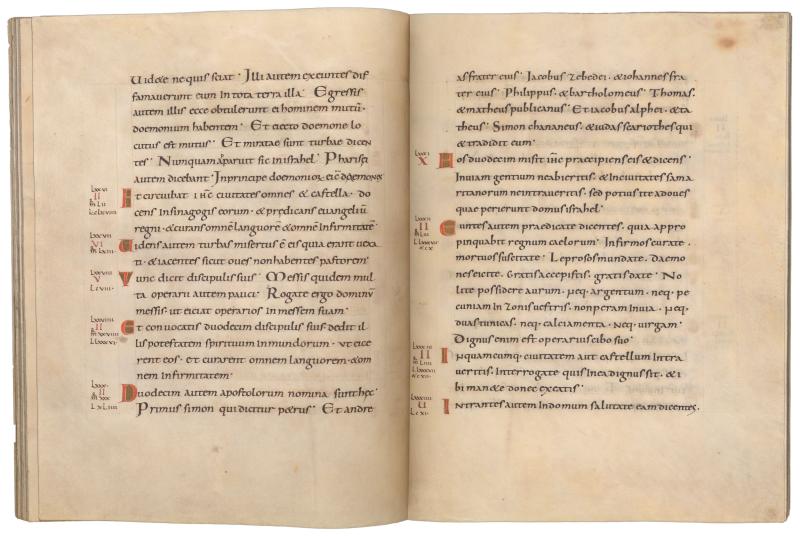 Uidete nequis sciat · Illi autem exeuntes dif
famauerunt eum In tota terra illa · Egressis
autem illis ecce obtulerunt ei hominem mutū ·
doemonium habentem · Et eiecto doemone lo
cutus est mutus · Et miratae sunt turbae dicen
tes · Numquam apparuit sic in israhel · Pharisęi
autem dicebant · In principe doemoniorum
LXXVI
II
Et circuibat IHC ciuitates omnes & castella · do
cens in sinagogis eorum · & predicans euangeliū
regni · & curans omnē languorē & omnē infirmitatē ·
LXXVII
VI
Uidens autem turbas misertus ē eis quia erant uexa
ti · & iacentes sicut oues non habentes pastorem ·
LXXVIII
V
Tunc dicit discipulis suis · Messis quidem mul
ta operarii autem pauci · Rogate ergo dominū
messis · ut eiciat operarios in messem suam ·
LXXVIIII
II
Et conuocatis duodecim discipulis suis · dedit il
lis potestatem spirituum inmundorum · ut eice
rent eos · et curarent omnem languorem · & om
nem infirmitatem ·
LXXX
II
Duodecim autem apostolorum nomina sunt hęc ·
Primus simon qui dicitur petrus · Et andre
as frater eius · Iacobus zebedei · & iohannes fra
ter eius · Philippus · & bartholomeus · Thomas ·
& matheus publicanus · Et iacobus alphei · & ta
theus · Simon chananeus · & iudas scariothes qui
& tradidit eum ·
LXXXI
X
Hos duodecim misit IHC praecipiens eis & dicens ·
In uiam gentium ne abieritis · & in ciuitates sama
ritanorum ne intraueritis · sed potius ite ad oues
quae perierunt domus israhel ·
LXXXII
II
Euntes autem praedicate dicentes · quia appro
pinquabit regnum caelorum · Infirmos curate ·
mortuos suscitate · Leprosos mundate · daemo
nes eicite · Gratis accepistis · gratis date · No
lite possidere aurum · neq · argentum · neq · pe
cuniam in zonis uestris · non peram in uia · neq ·
duas tunicas · neq · calciamenta · neq · uirgam ·
Dignus enim est operarius cibo suo ·
LXXXIII
II
In quamcumq · ciuitatem aut castellum intra
ueritis · Interrogate quis in ea dignus sit · & i
bi manete donec exeatis ·
LXXXIIII
U
Intrantes autem in domum salutate eam dicentes ·